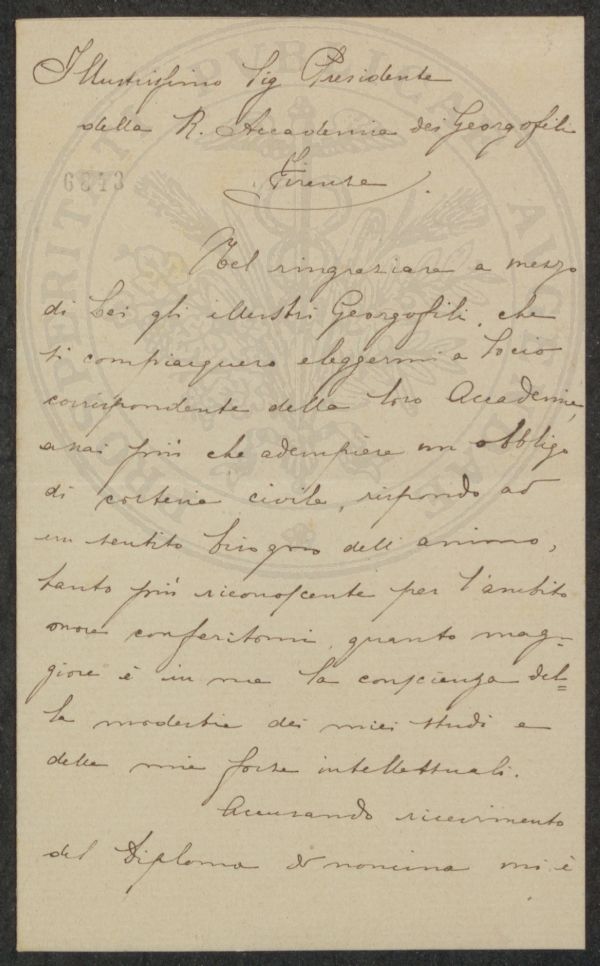 Illustrissimo Sig Presidente
della R. Accademia dei Georgofili
6843
Firenze
Nel ringraziare a mezzo
di Lei gli illustri Georgofili, che
si compiacquero eleggermi a Socio
corrispondente della loro Accademia,
assai più che adempiere un obbligo
di cortesia civile, rispondo ad
un sentito bisogno dell'animo,
tanto più riconoscente per l'ambito
onore conferitomi, quanto mag=
giore è in me la conscienza del=
la modestia dei miei studi e
delle mie forze intellettuali.
Accusando ricevimento
del Diploma di nomina mi è
PROSPERITATI PUBLICAE AUGENDAE